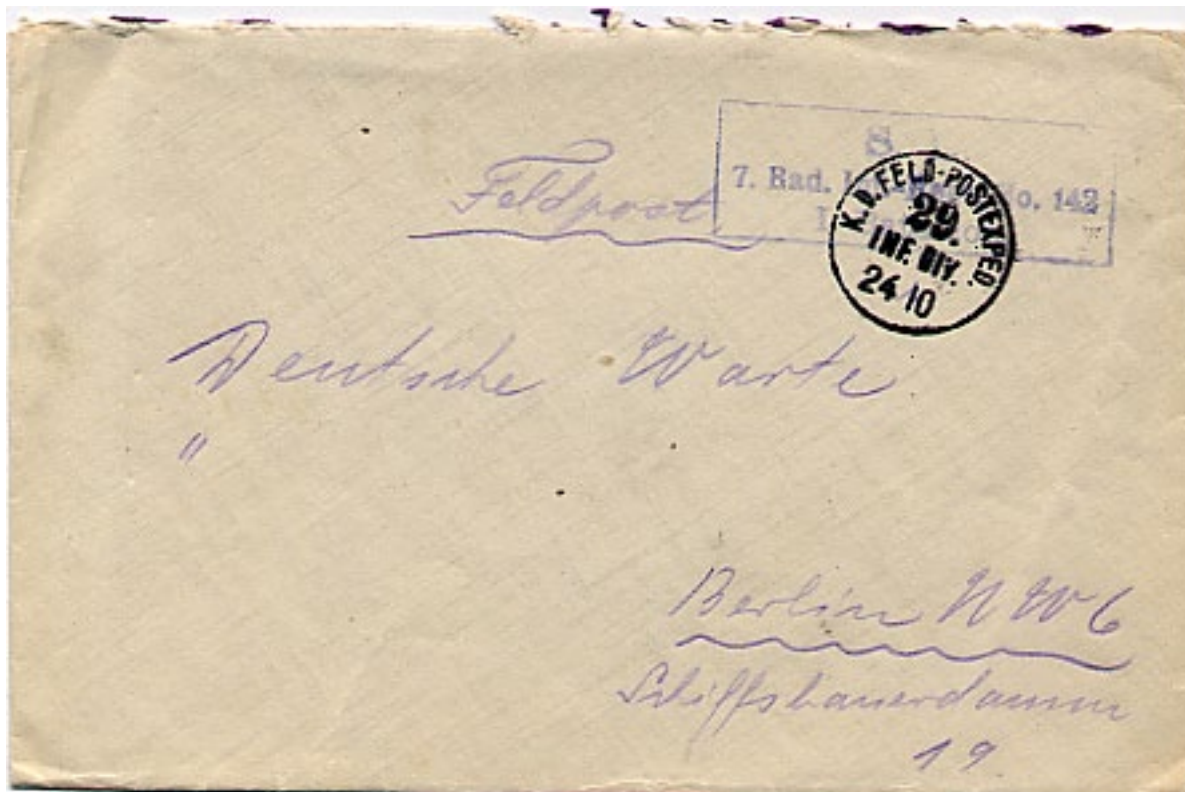 S
7. Bad. No. 142
K. D. FELD-POSTEXPED.
29.
INF. DIV.
24 10
Feldpost
Deutsche Warte
"
Berlin NW 6
Schiffbauerdamm
19